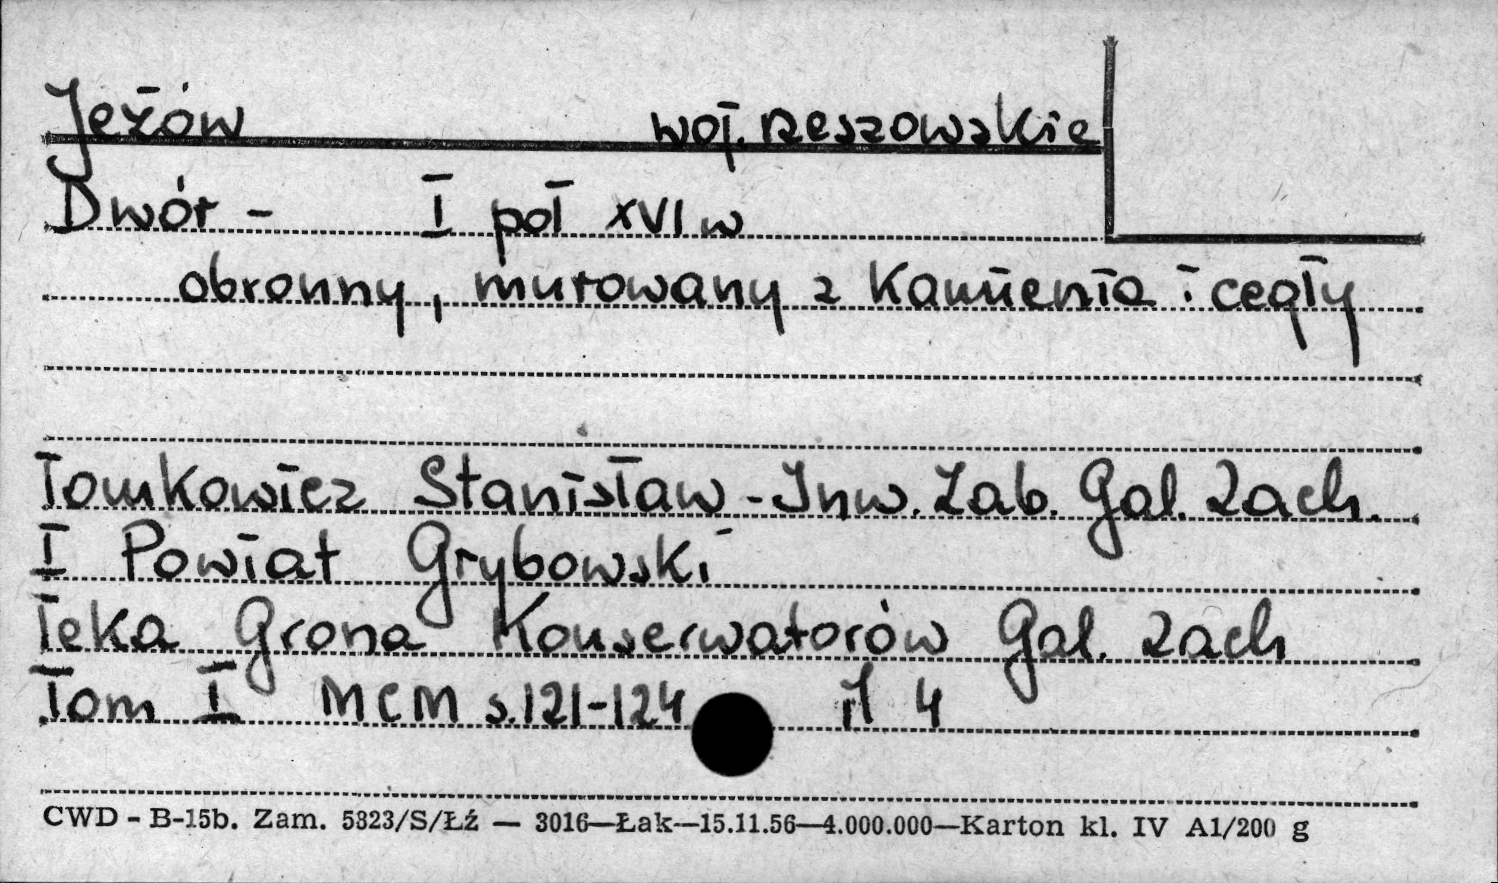 Jeżów woj. rzeszowskie
Dwór - I poł XVI w
obronny, murowany z kamienia i cegły
Tomkowicz Stanisław - Inw. Zab. Gal. Zach.
I Powiat Grybowski
Teka Grona Konserwatorów Gal. Zach
Tom I MCM s. 121-124 il 4
CWD - B-15b. Zam. 5323/S/Łź — 3016—Łak—15.11.56—4.000.000—Karton kl. IV A1/200 g